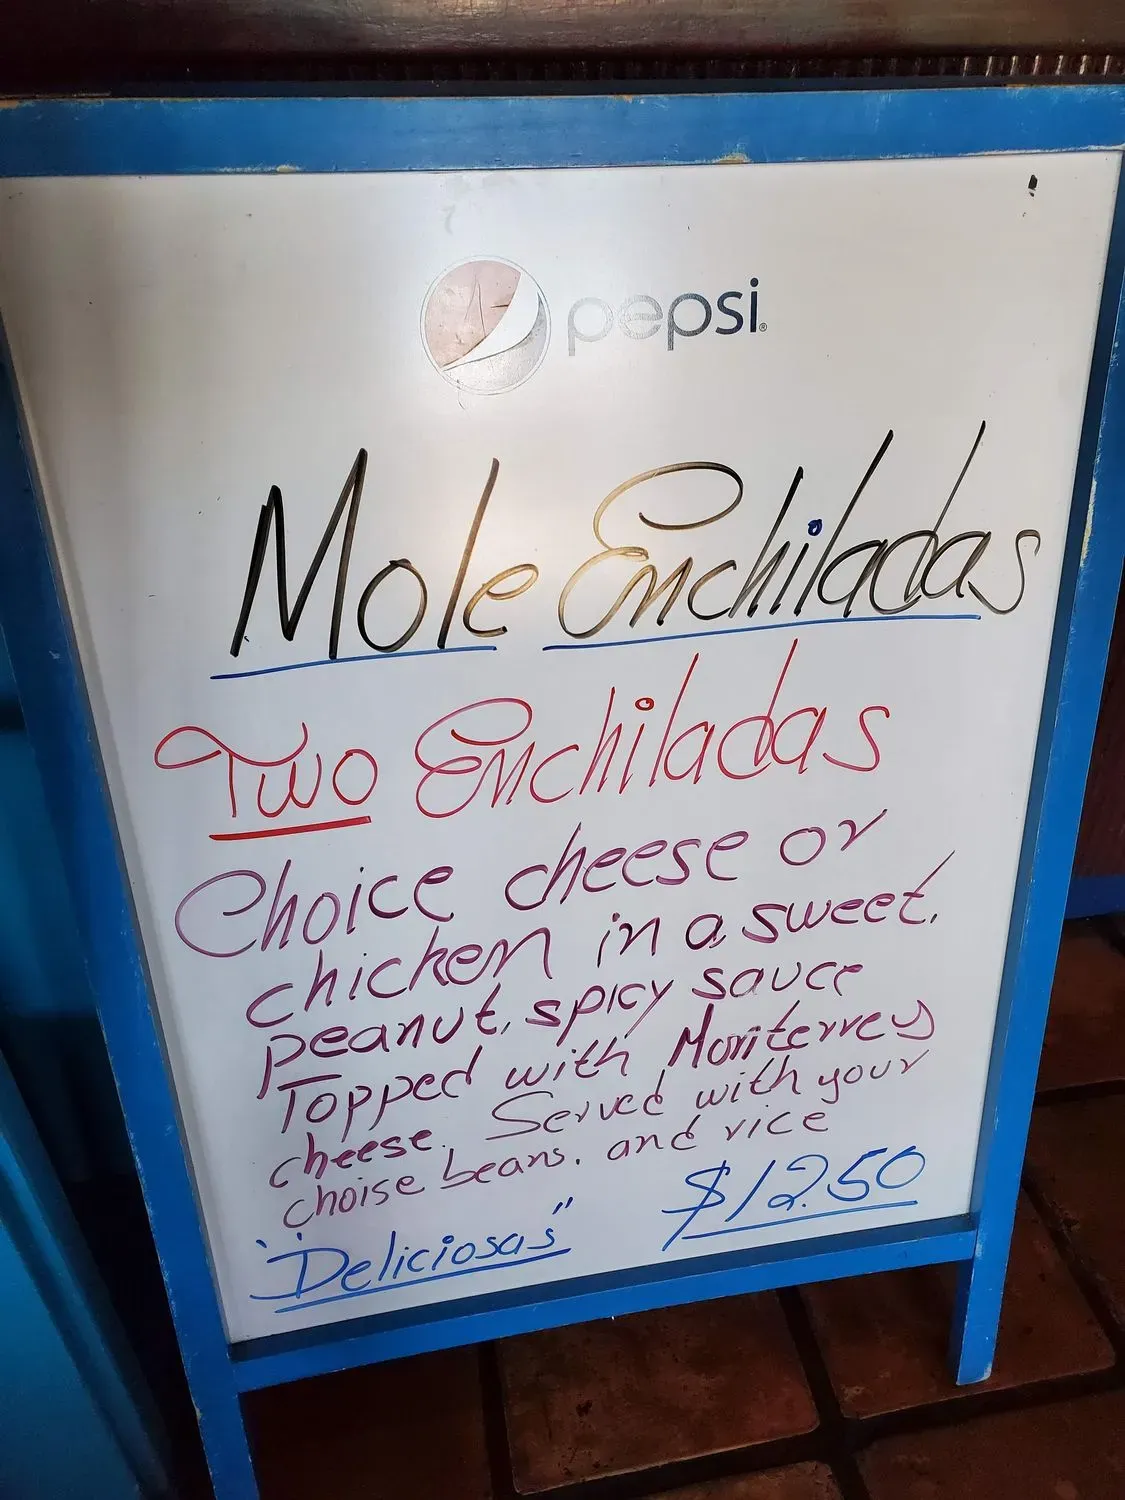 pepsi®
Mole Enchiladas
Two Enchiladas
Choice cheese or
chicken in a sweet,
peanut, spicy sauce
Topped with Monterrey
cheese. Served with your
choise beans. and rice
"Deliciosas" $12.50